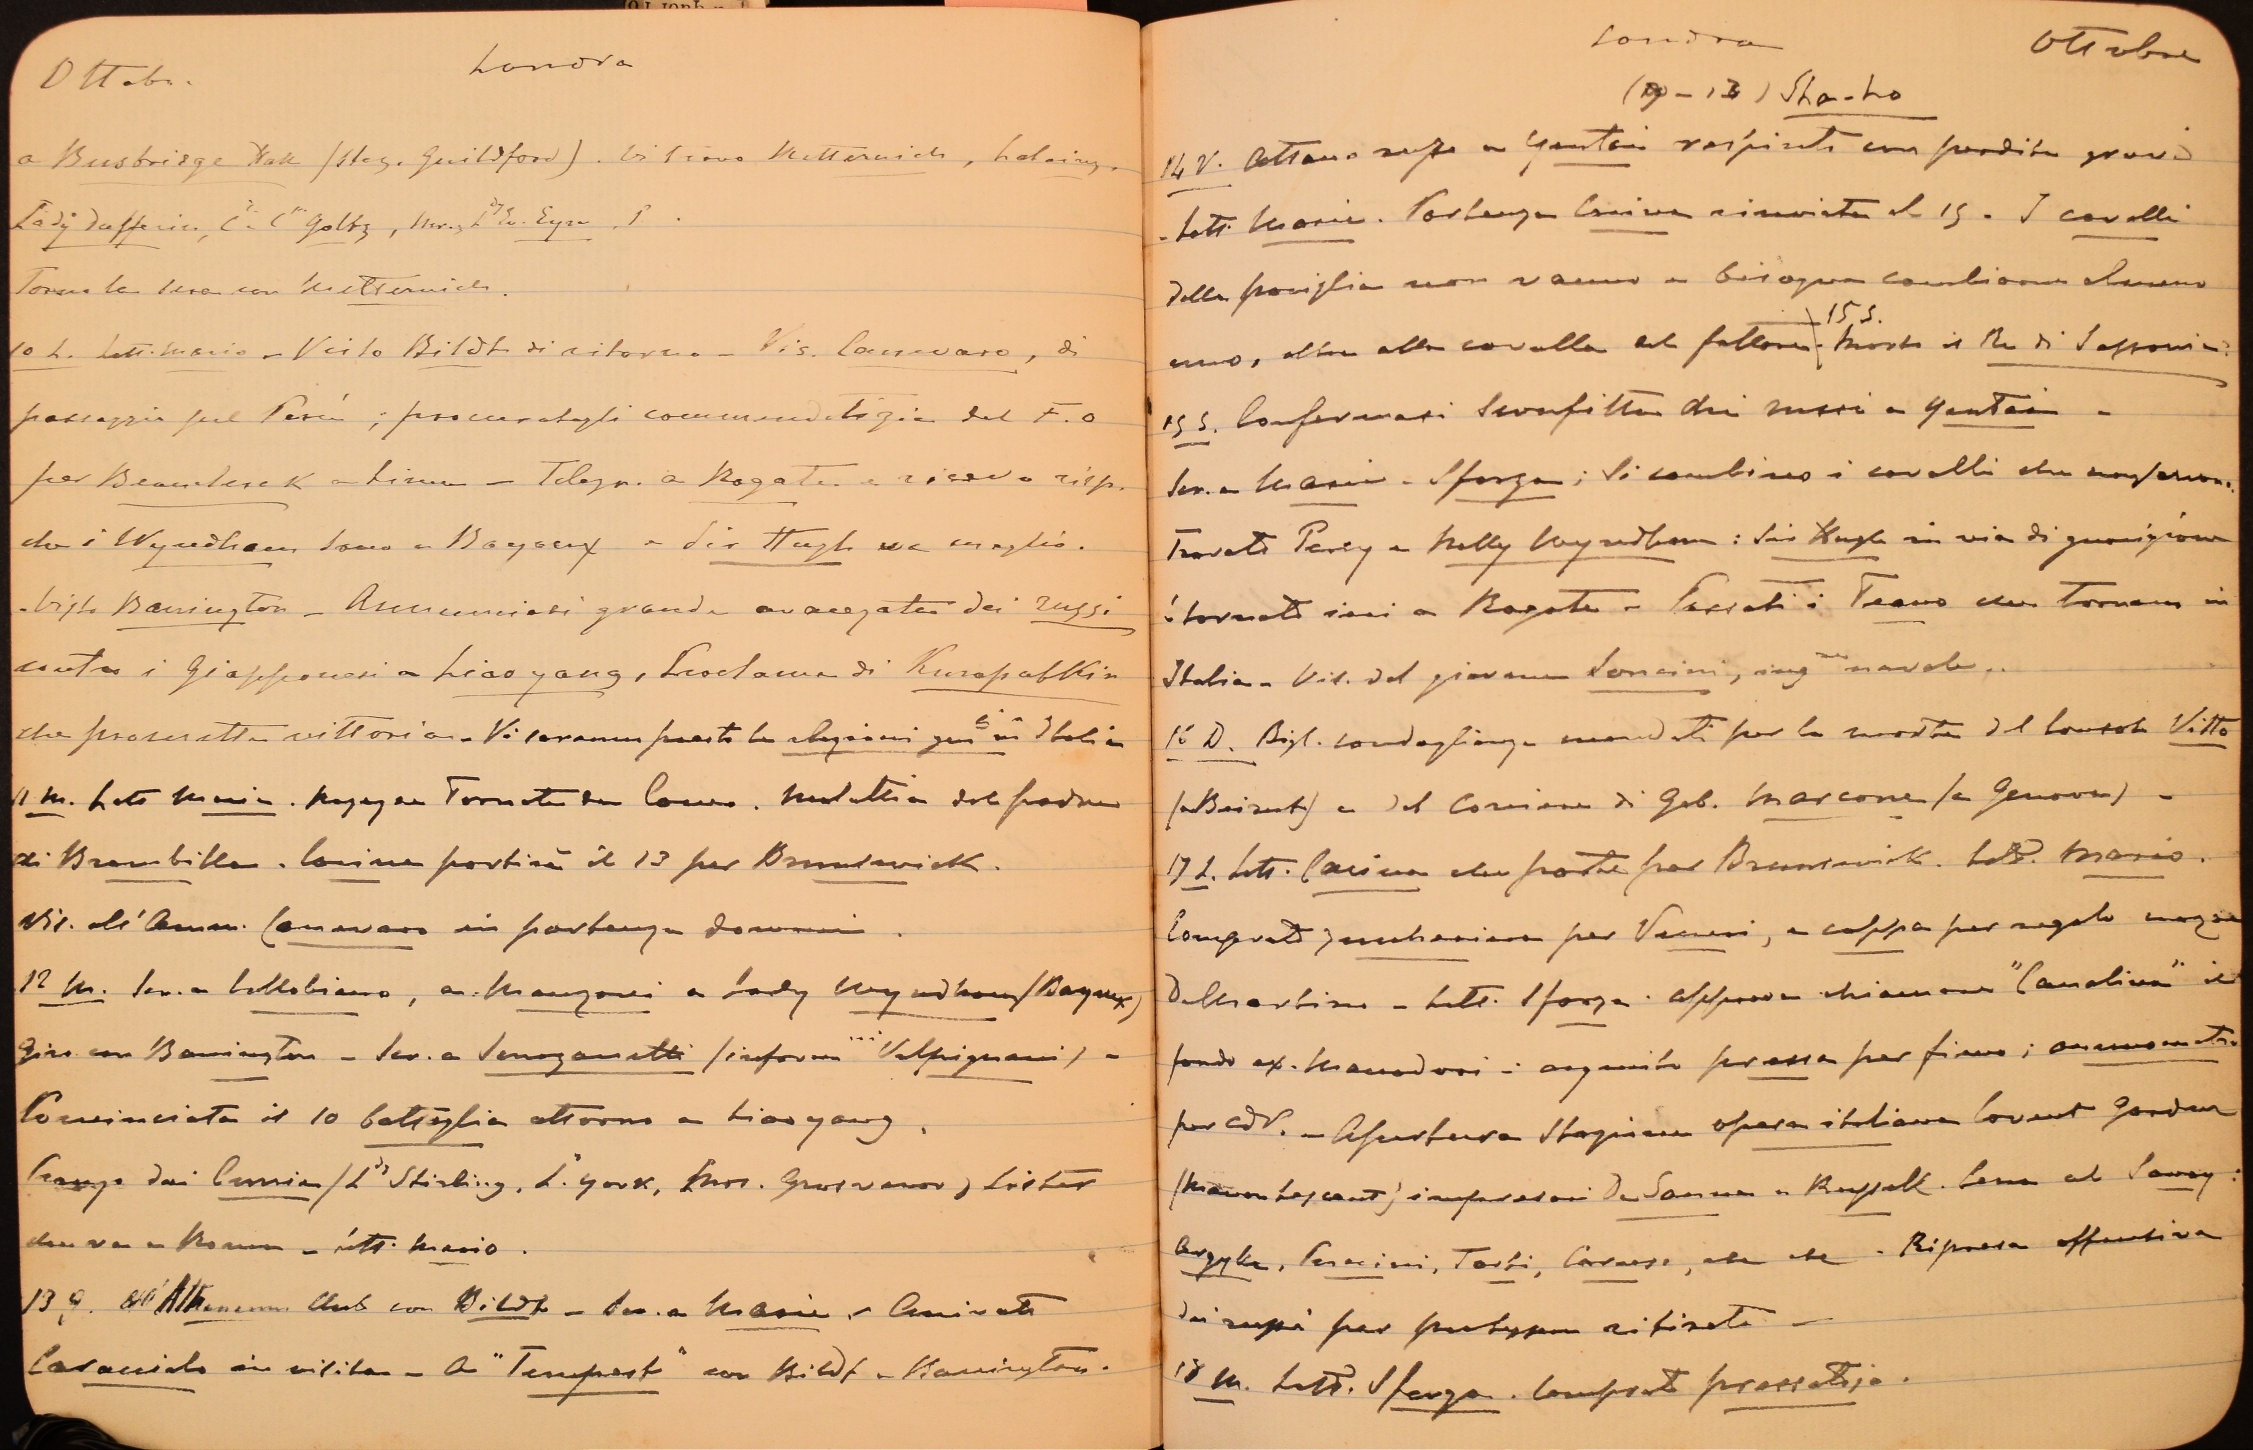 Ottobr. Londra
a Busbridge Hall (staz. Guildford). Vi trovo Metternich, Lalaing,
Lady Dufferin, Cte Ctsse Goltz, Mrs Eyre
Torno la sera con Metternich.
10 L. Lett. Mario – Visto Bildt di ritorno – Vis. Canevaro, di
passaggio pel Perù; procuratagli commendatizia del F.O
per Beauclerk a Lima – Telegr. a Ragatz e ricevo risp.
che i Wyndham sono a Bayeux e Sir Hugh va meglio.
Barrington – Annunciasi grande avanzata dei russi
contro i Giapponesi a Liaoyang, Proclama di Kuropatkin
che promette vittoria. Vi saranno presto le elezioni genli in Italia
11 M. Lett Maria. Tornata da Como. Malattia del padre
di Brambilla. Carina partirà il 13 per Brunswick.
Vis. all'Amm. Canevaro in partenza domani.
12 M. Scr. a Collobiano, a Manzoni a Lady Wyndham (Bayeux)
Giro con Barrington – Scr. a (inform ni Valpignani) –
Cominciata il 10 battaglia attorno a Liaoyang.
Pranzo dai Currie (Ld Stirling, L. York, Mrs. Grosvenor, Lister
che va a Roma – lett. Mario.
13 G. All'Athenaeum Club con Bildt – Scr. a Maria. Arrivato
Caracciolo in visita – A "Tempest" con Bildt e Barrington.
Londra Ottobre
(10 – 13) Sha-ho
14 V. Attacco russo a Yentai respinto con perdite gravi
Lett. Maria. Partenza Carina rinviata al 15 – I cavalli
della pariglia non vanno e bisogna cambiarne almeno
uno, oltre alla cavalla del fattore. 15 S. Morto il Re di Sassonia.
15 S. Confermasi sconfitta dei russi a Yentai –
Scr. a Maria – Sforza; si cambino i cavalli che non servono.
Trovato Percy e Nelly Wyndham: Sir Hugh in via di guarigione
è tornato ieri a Ragatz – Passati i Teano che tornano in
Italia – Vis. del giovane Soncini, ing re navale.
16 D. Bigl. condoglianza mandati per la morte del Console Vitto
(a Beirut) e del Corriere di Gab. Marcone (a Genova) –
17 L. Lett. Carina che parte per Brunswick. Lett. Mario.
Comprato zuccheriera per Veneri, e coppa per regalo nozze
DeMartino – Lett. Sforza. approva chiamare "Carolina" il
fondo ex. Manodori – acquisto pressa per fieno; anemometro
per CdV. – Apertura stagione opera italiana Covent Garden
(Manon Lescaut) impresari De Sanna e Russell. Cena al Savoy:
Argyll, Puccini, Tosti, Caruso, etc etc – Ripresa offensiva
dai russi
18 M. Lett. Sforza. Comprato